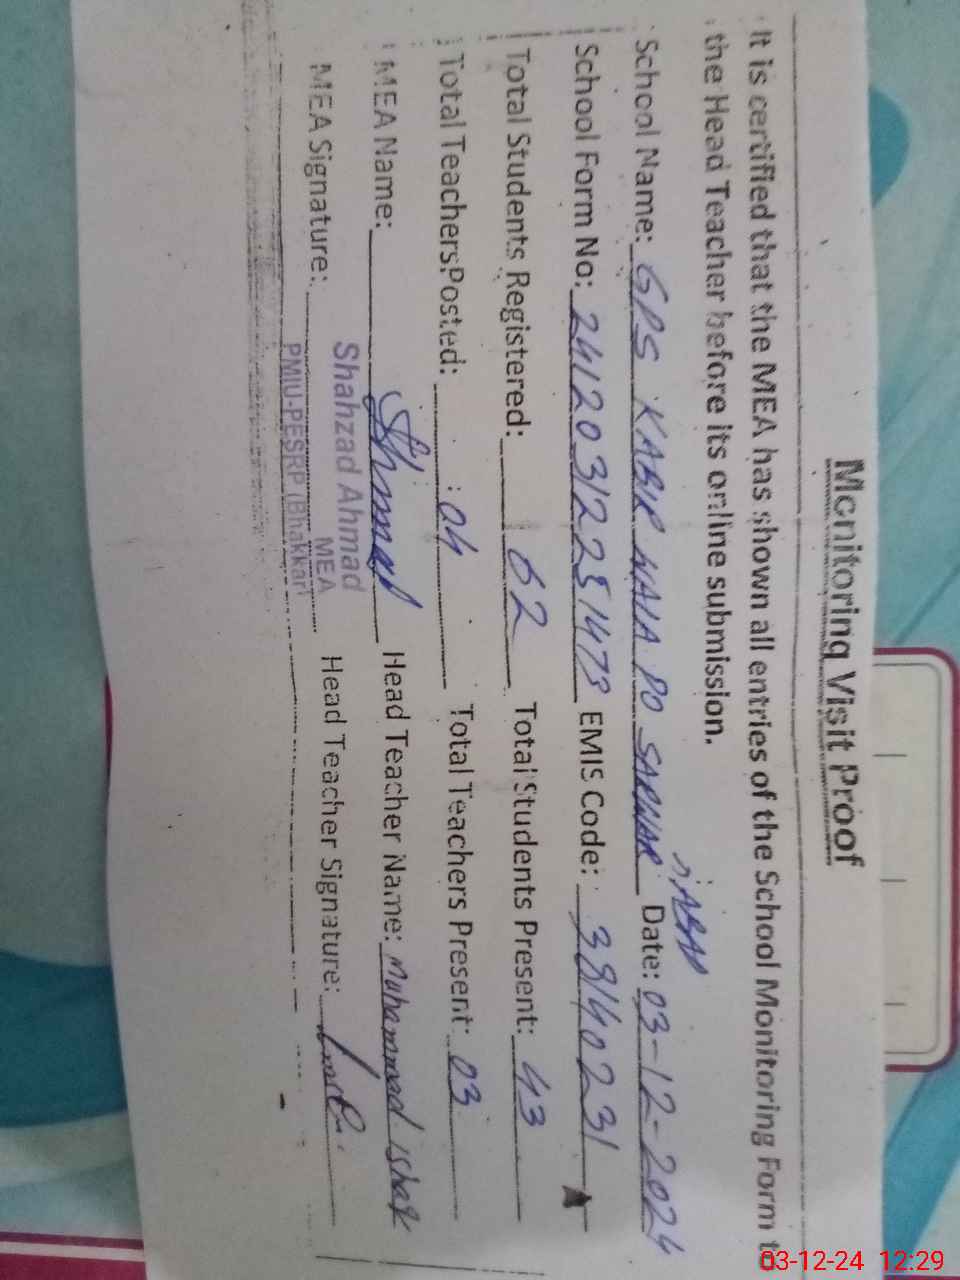 Monitoring Visit Proof
It is certified that the MEA has shown all entries of the School Monitoring Form to
the Head Teacher before its online submission.
ABAD
School Name: GPS KABIR WALA PO SARWAR Date: 03-12-2024
School Form No: 24120312251473 EMIS Code: 38140231
Total Students Registered: 62 Total Students Present: 43
Total Teachers Posted: 04 Total Teachers Present: 03
MEA Name: Head Teacher Name: Muhammad Ishaq
Shahzad Ahmad
MEA
MEA Signature: Head Teacher Signature:
PMIU-PESRP (Bhakkar)
03-12-24 12:29